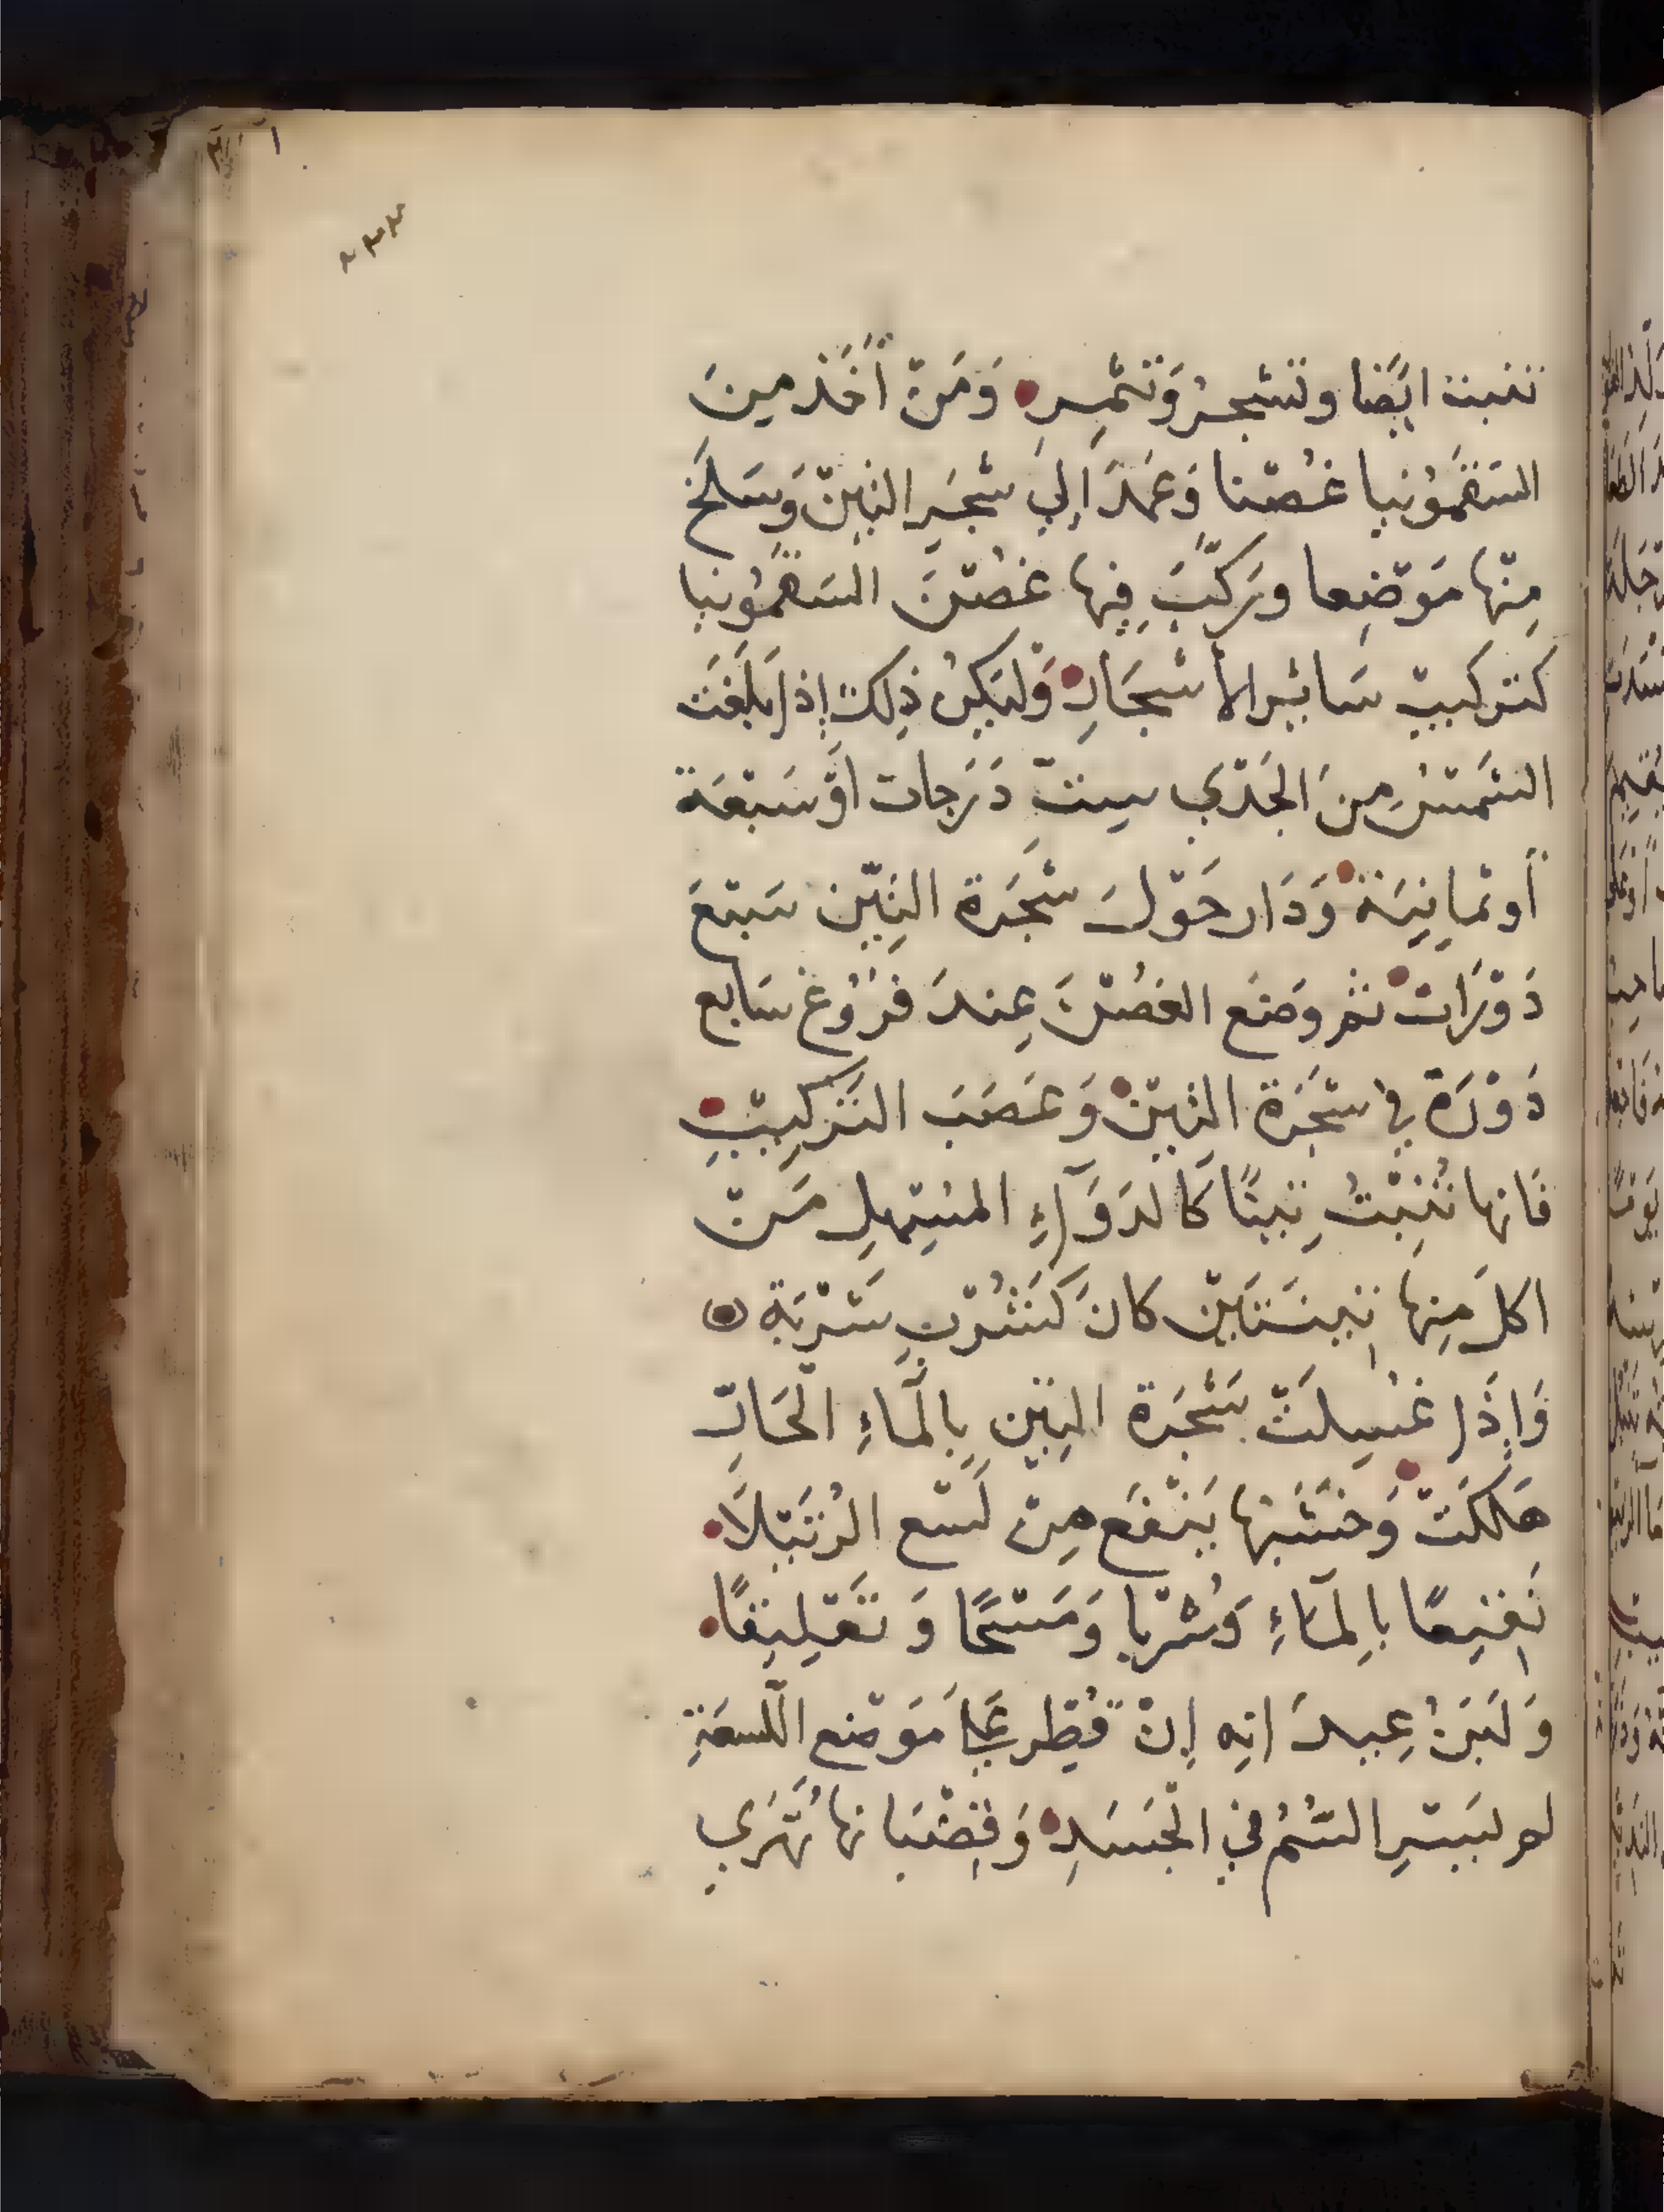 تنبت ايَضا وتشجرُ وَتثمِرِ وَمَنْ أَخَذ مِينَ
السَقمُونيا غُصْنا وَعَمَدَ اِليَ شجَرِ التِينْ وَسَلخَ
مِنْها مَوْضِعا ورَكّبَ فِيها غصُنَ السَقمُونيا
كتركيبْ سَائِرِ الأشجَارِ وَليَكنْ ذلِكَ إذا بَلَغَت
الشمْسُ مِنَ الجَدْي سِتْ دَرَجات اوْ سَبْعَة
أو ثمانِيَة وَدَار حَوْلَ شجَرة التِيْن سَبْعَ
دَوْرَات ثم وضَع الغصْنَ عِندَ فرُوغ سَابع
دَوْرَة في شجَرَة التِيْن وَعَصَبَ التَركِيبْ
فَانها تُنبِتْ تِينًا كَالدَوَآءِ المسُهِلِ مَنْ
اكلَ مِنها تِينَتَيْن كانَ كَشُرْبِ شَرْبَة
وَاِذَا غسُلِتْ شَجَرة التِيْن بِالمَآءِ الحَارّ
هَلَكَتْ وَخشَبها يَنْفَع مِنْ لَسْع الرُتَيْلَا
نَقِيعًا بِالمآءِ وَشُرْبا وَمَسْحًا وَتَعْلِيقًا
وَلَبَنُ عِيدَانِه إنْ قُطِر عَلَى مَوْضع اللسعَةِ
لم يَسْرِ السُمُ في الجَسَدِ وَقضْبَانها تُهَرِي